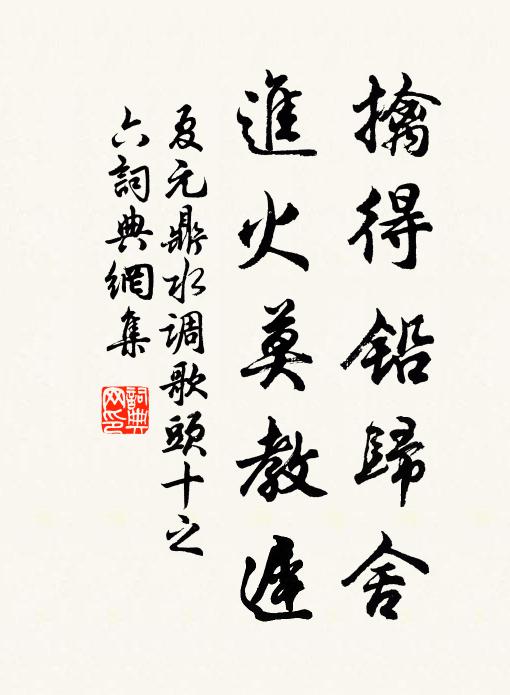 擒得鉛歸舍
進火莫教遲
夏元鼎水调歌頭十之
六詞典網集
詞典网印